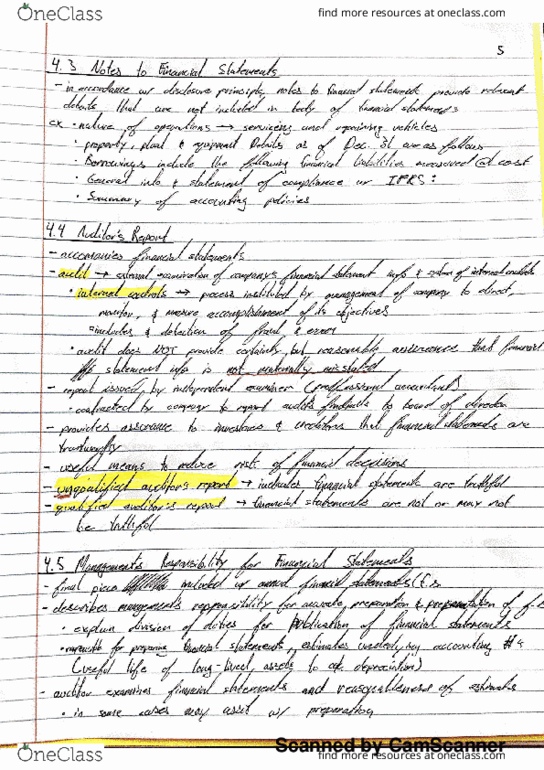 OneClass
find more resources at oneclass.com
5
4.3 Notes to Financial Statements
- in accordance w/ disclosure principle, notes to financial statements provide relevant
details that are not included in body of financial statements
ex • nature of operations → servicing and repairing vehicles
• property, plant & equipment details as of Dec. 31 are as follows
• Borrowings include the following financial liabilities measured @ cost
• General info & statement of compliance w/ IFRS:
• Summary of accounting policies
4.4 Auditor's Report
- accompanies financial statements
- audit → external examination of company's financial statement info & system of internal controls
• internal controls → process instituted by management of company to direct,
monitor, & measure accomplishment of its objectives
• includes & detection of fraud & error
• audit does NOT provide certainty, but reasonable assurance that financial
statement info is not materially misstated
- report issued by independent examiner (professional accountant)
• contracted by company to report audit's findings to board of directors
- provides assurance to investors & creditors that financial statements are
trustworthy
- useful means to reduce risk of financial decisions
- unqualified auditor's report → includes financial statements are truthful
- qualified auditor's report → financial statements are not or may not
be truthful
4.5 Management's Responsibility for Financial Statements
- final piece included w/ annual financial statements (f.s
- describes management's responsibility for accurate, preparation & presentation of f.s
• explain division of duties for publication of financial statements
• responsible for preparing financial statements, estimates underlying accounting #s
(useful life of long-lived assets to calc. depreciation)
- auditor examines financial statements and reasonableness of estimates
• in some cases may assist w/ preparation
Scanned by CamScanner
OneClass
find more resources at oneclass.com